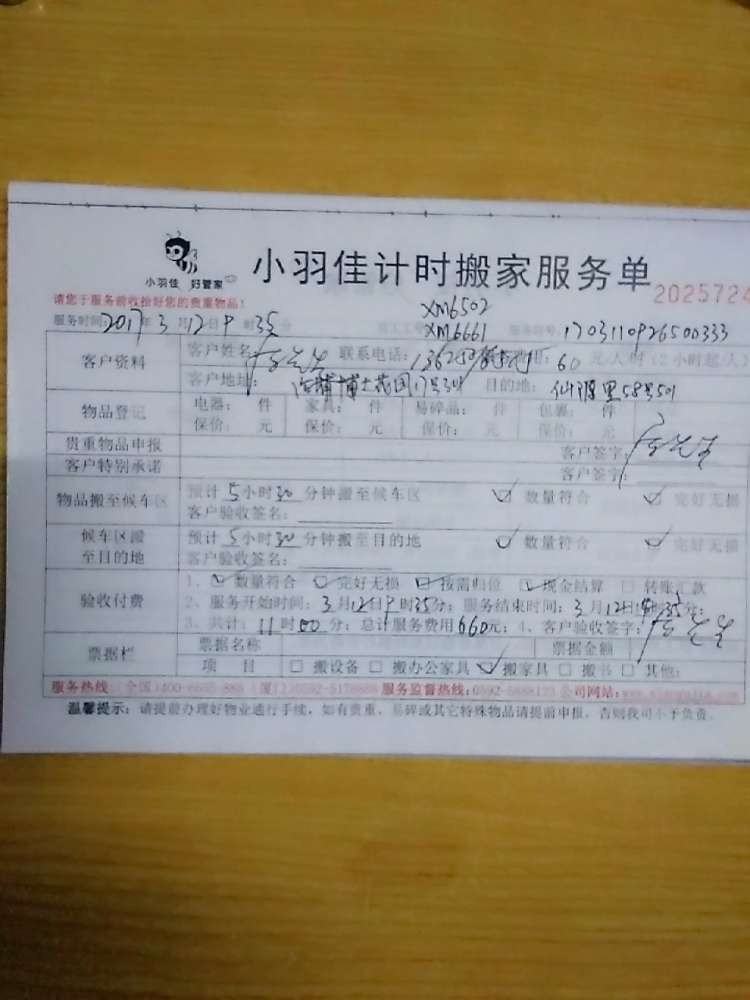 小羽佳 好管家
小羽佳计时搬家服务单
2025724
请您于服务前收拾好您的贵重物品!
XM6502
服务时间: 2017年3月12日9时35分 XM6661 1703110926500333
客户资料 客户姓名: 联系电话: 60元/人时(2小时起/人)
客户地址: 博士花园17号301 目的地: 仙源里58号501
物品登记 电器: 件 家具: 件 易碎品: 件 包裹: 件
保价: 元 保价: 元 保价: 元 保价: 元
贵重物品申报 客户签字:
客户特别承诺 客户签字:
物品搬至候车区 预计5小时30分钟搬至候车区 ☑数量符合 ☑完好无损
客户验收签名:
候车区搬至目的地 预计5小时30分钟搬至目的地 ☑数量符合 ☑完好无损
客户验收签名:
验收付费 1、☑数量符合 ☑完好无损 ☑按需归位 ☑现金结算 □转账汇款
2、服务开始时间: 3月12日9时35分; 服务结束时间: 3月12日 35分;
3、共计: 11时00分; 总计服务费用660元; 4、客户验收签字:
票据栏 票据名称 票据金额
项目 □搬设备 □搬办公家具 ☑搬家具 □搬书 □其他:
服务热线: (全国)400-6605-888 (厦门)0592-5178888 服务监督热线:0592-5688123 公司网站:
温馨提示: 请提前办理好物业进行手续, 如有贵重、易碎或其它特殊物品请提前申报, 否则我司不予负责。